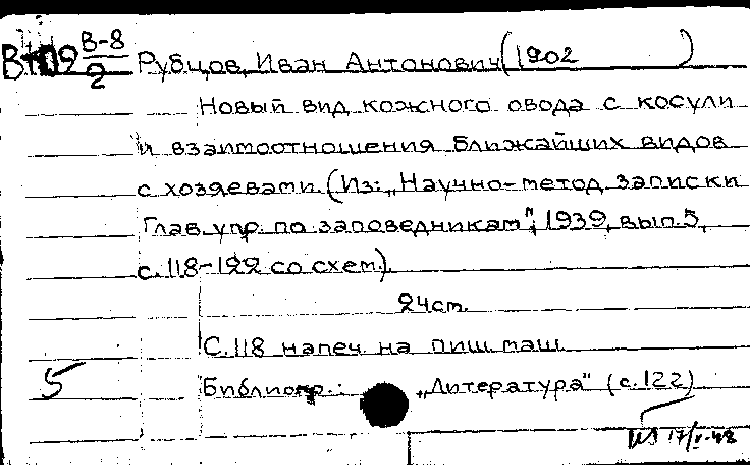 В-8
В 109 2 Рубцов, Иван Антонович (1902 )
Новый вид кожного овода с косули
и взаимоотношения ближайших видов
с хозяевами. (Из: „Научно-метод. записки
Глав. упр. по заповедникам", 1939, вып. 5,
с. 118-122 со схем).
24 см.
С. 118 напеч. на пиш. маш.
5 Библиогр.: „Литература" (с. 122)
17/V-48